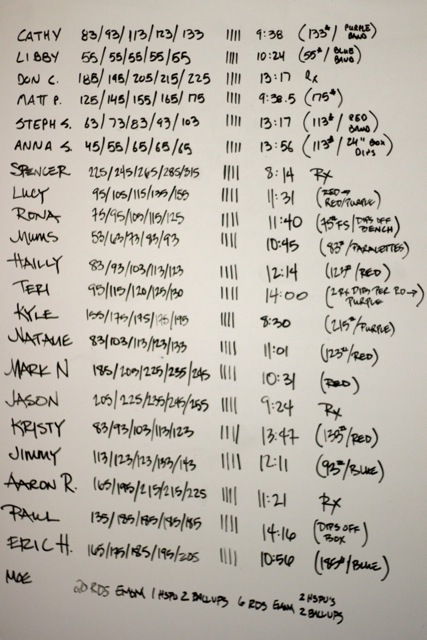 CATHY 83/93/113/123/133 |||| 9:38 (133#/PURPLE BAND)
LIBBY 55/55/55/55/55 |||| 10:24 (55#/BLUE BAND)
DON C. 185/195/205/215/225 |||| 13:17 Rx
MATT P. 125/145/155/165/175 |||| 9:38.5 (175#)
STEPH S. 63/73/83/93/103 |||| 13:17 (113#/RED BAND)
ANNA S. 45/55/65/65/65 |||| 13:56 (113#/24" BOX DIPS)
SPENCER 225/245/265/285/315 |||| 8:14 Rx
LUCY 95/105/115/135/155 |||| 11:31 (RED → RED/PURPLE)
RONA 75/95/105/115/125 |||| 11:40 (75# FS/DIPS OFF BENCH)
MUMS 53/63/73/83/93 |||| 10:45 (83#/PARALETTES)
HAILLY 83/93/103/113/123 |||| 12:14 (123#/RED)
TERI 95/115/120/125/130 |||| 14:00 DIPS PER RD → PURPLE)
KYLE 155/175/195/195/195 |||| 8:30 (215#/PURPLE)
NATALIE 83/103/113/123/133 |||| 11:01 (123#/RED)
MARK N 185/205/225/235/245 |||| 10:31 (RED)
JASON 205/225/235/245/255 |||| 9:24 Rx
KRISTY 83/93/103/113/123 |||| 13:47 (133#/RED)
JIMMY 113/123/123/133/143 |||| 12:11 (93#/BLUE)
AARON R. 165/195/215/215/225 |||| 11:21 Rx
PAUL 135/185/185/185/185 |||| 14:16 (DIPS OFF BOX)
ERIC H. 165/175/185/195/205 |||| 10:56 (185#/BLUE)
MOE 20 RDS EMOM 1 HSPU 2 BALLUPS 6 RDS EMOM 2 HSPU'S 2 BALLUPS